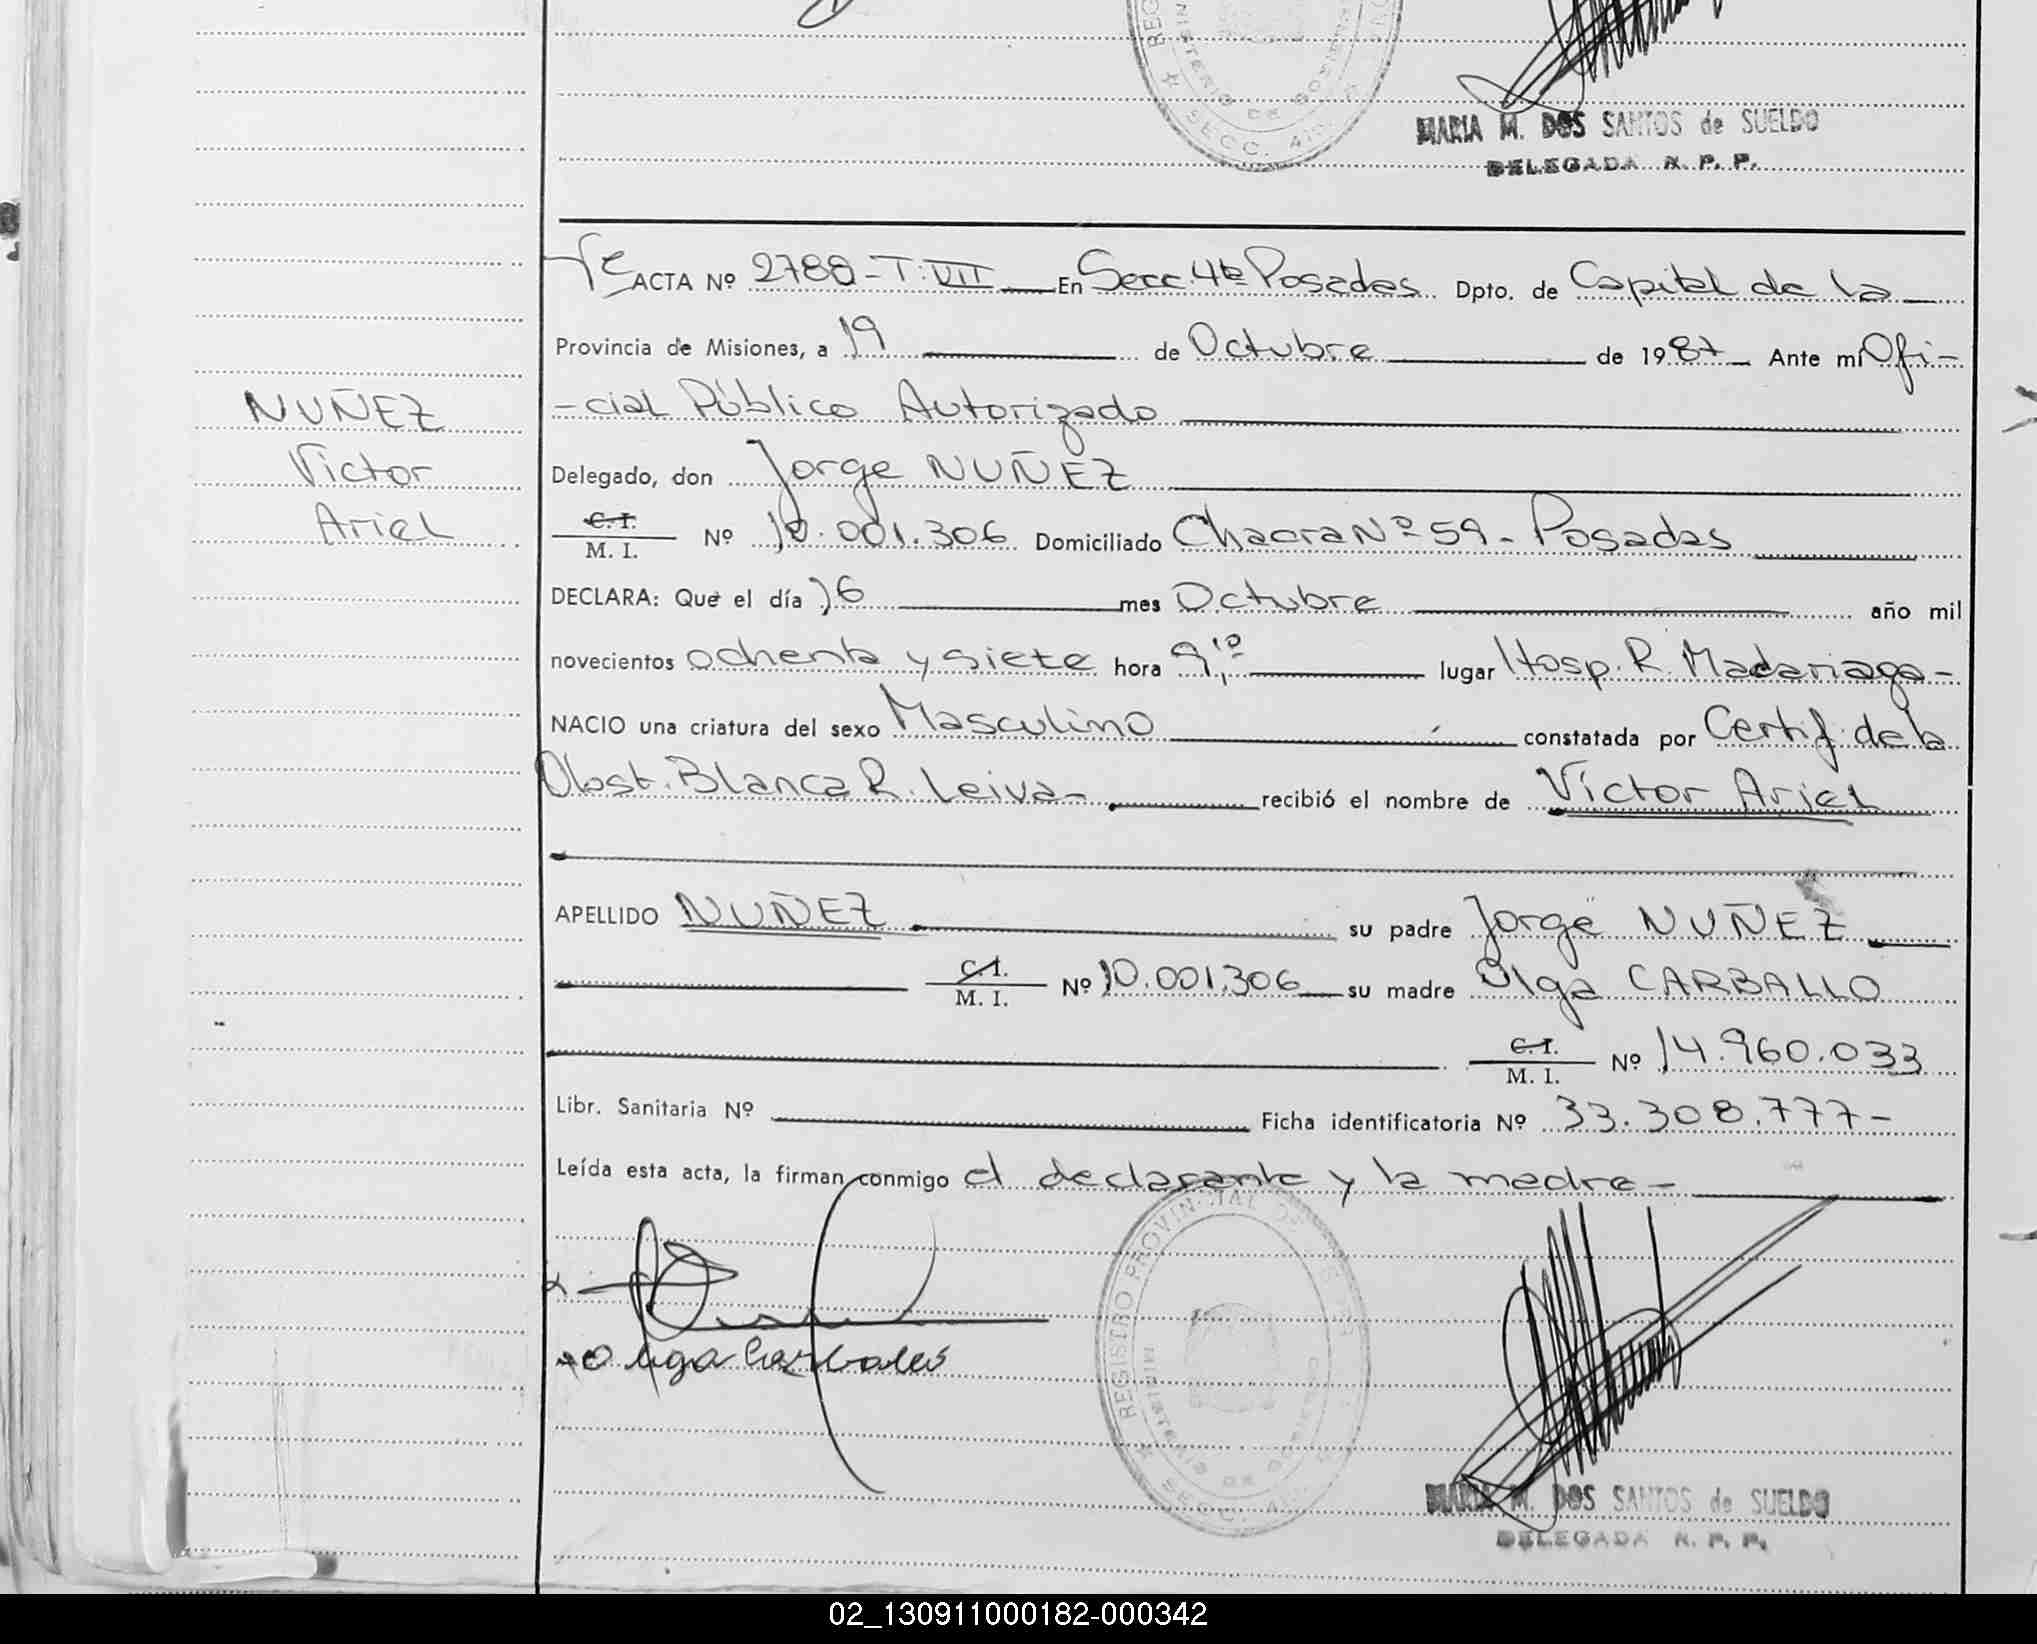 MARIA M. DOS SANTOS de SUELDO
DELEGADA R. P. P.
ACTA Nº 2788 - T: VII En Secc. 4ta Posadas Dpto. de Capital de la
Provincia de Misiones, a 19 de Octubre de 1987 Ante mí Ofi-
-cial Público Autorizado
NUÑEZ
Victor
Ariel
Delegado, don Jorge NUÑEZ
C. I.
M. I. Nº 10.001.306 Domiciliado Chacra Nº 59 - Posadas
DECLARA: Que el día 16 mes Octubre año mil
novecientos ochenta y siete hora 9,10 lugar Hosp. R. Madariaga -
NACIO una criatura del sexo Masculino constatada por Certif. de la
Obst. Blanca R. Leiva - recibió el nombre de Víctor Ariel
APELLIDO NUÑEZ su padre Jorge NUÑEZ
C. I.
M. I. Nº 10.001.306 su madre Olga CARBALLO
C. I.
M. I. Nº 14.960.033
Libr. Sanitaria Nº Ficha identificatoria Nº 33.308.777 -
Leída esta acta, la firman conmigo el declarante y la madre -
REGISTRO PROVINCIAL DE
MINISTERIO DE GOBIERNO
SECC. 4ta
MARIA M. DOS SANTOS de SUELDO
DELEGADA R. P. P.
02_130911000182-000342